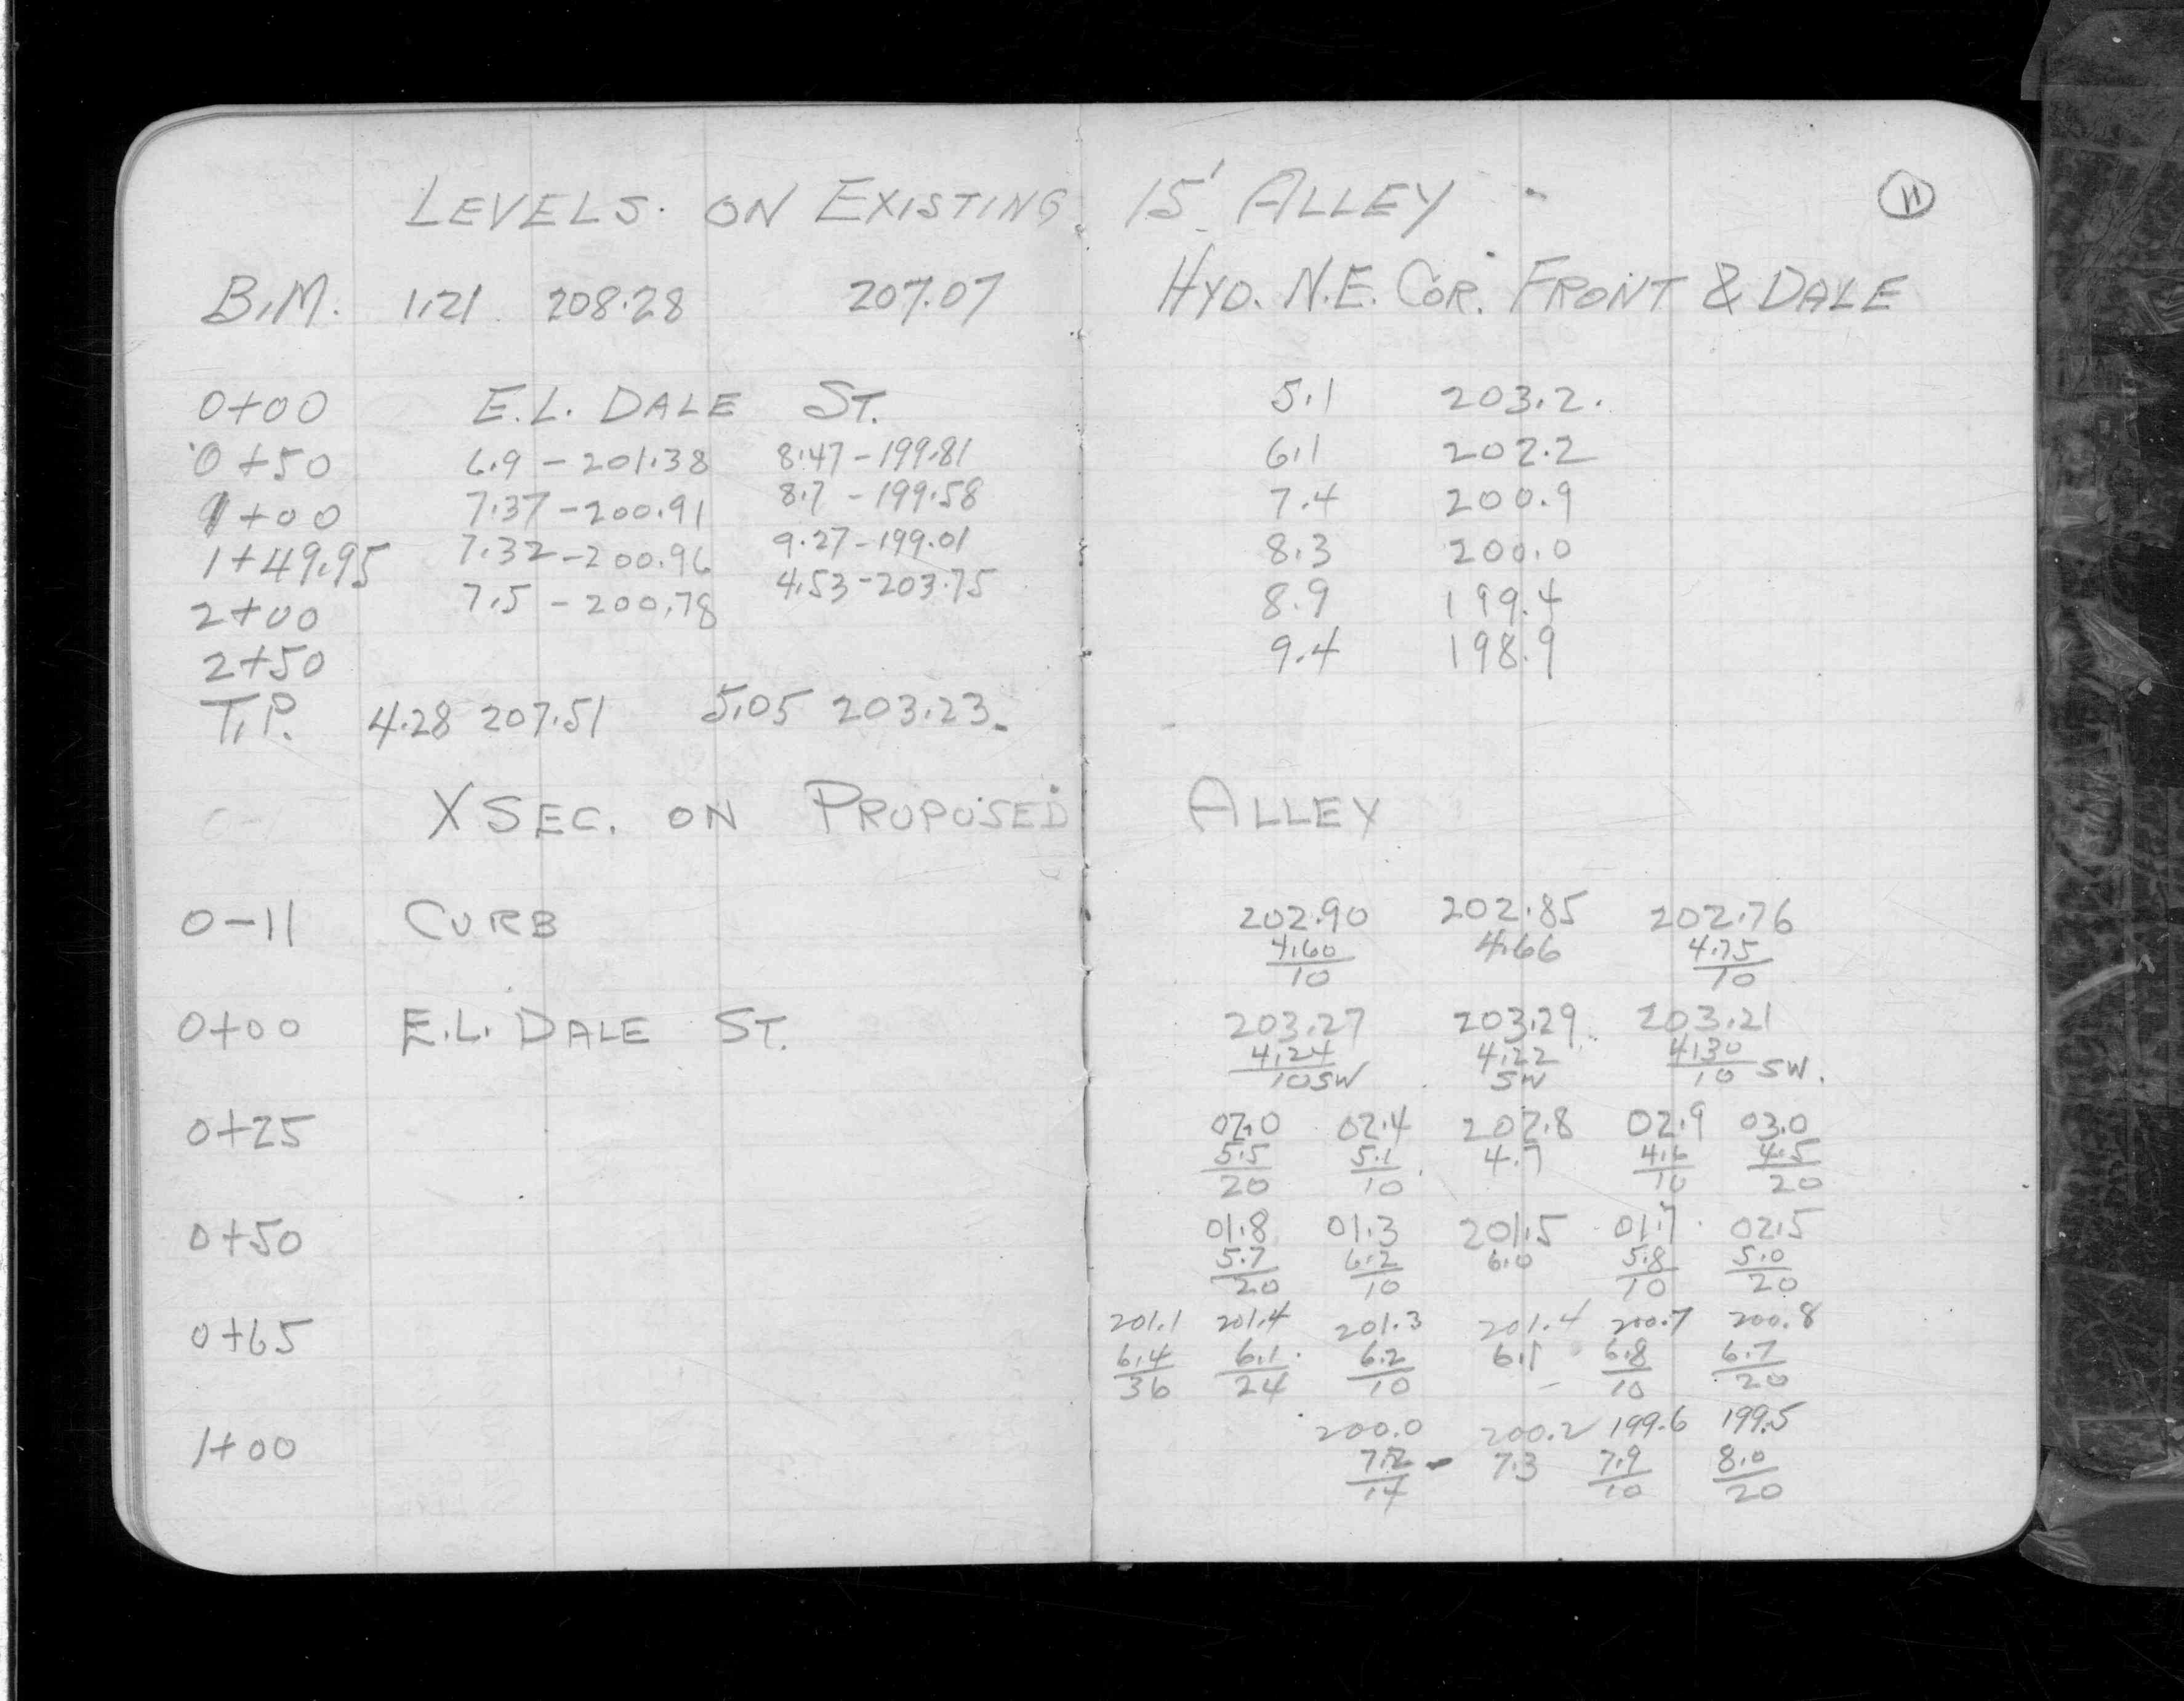 LEVELS. ON EXISTING 15' ALLEY
11
B.M. 1.21 208.28 207.07 HYD. N.E. COR. FRONT & DALE
0+00 E.L. DALE ST. 5.1 203.2.
0+50 6.9 - 201.38 8.47 - 199.81 6.1 202.2
1+00 7.37 - 200.91 8.7 - 199.58 7.4 200.9
1+49.95 7.32 - 200.96 9.27 - 199.01 8.3 200.0
2+00 7.5 - 200.78 4.53 - 203.75 8.9 199.4
2+50 9.4 198.9
T.P. 4.28 207.51 5.05 203.23
X SEC. ON PROPOSED ALLEY
202.90 202.85 202.76
0-11 CURB 4.60 4.66 4.75
10 10
203.27 203.29 203.21
0+00 E.L. DALE ST. 4.24 4.22 4.30
10 SW SW 10 SW.
02.0 02.4 202.8 02.9 03.0
0+25 5.5 5.1 4.7 4.6 4.5
20 10 10 20
01.8 01.3 201.5 01.7 02.5
0+50 5.7 6.2 6.0 5.8 5.0
20 10 10 20
201.1 201.4 201.3 201.4 200.7 200.8
0+65 6.4 6.1 6.2 6.1 6.8 6.7
36 24 10 10 20
200.0 200.2 199.6 199.5
1+00 7.3 7.9 8.0
14 10 20